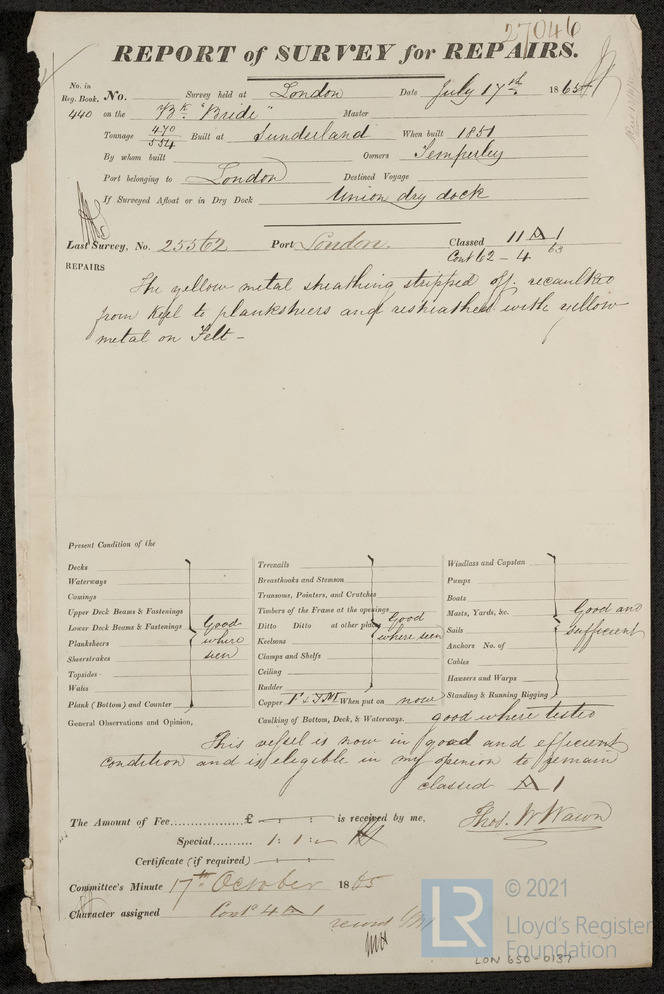 27046
REPORT of SURVEY for REPAIRS.
No. in Reg. Book. No. Survey held at London Date July 17th 1865
440 on the Bk. "Bride" Master
Tonnage 470/554 Built at Sunderland When built 1851
By whom built Owners Temperley
Port belonging to London Destined Voyage
If Surveyed Afloat or in Dry Dock Union dry dock
Last Survey, No. 25562 Port London. Classed 11 A 1
Cont 62 - 4 63
REPAIRS
The yellow metal sheathing stripped off. recaulked
from Keel to planksheers and resheathed with yellow
metal on Felt -
Present Condition of the
Decks
Waterways
Comings
Upper Deck Beams & Fastenings
Lower Deck Beams & Fastenings
Planksheers
Sheerstrakes
Topsides
Wales
Plank (Bottom) and Counter
Good
where
seen
Treenails
Breasthooks and Stemson
Transoms, Pointers, and Crutches
Timbers of the Frame at the openings
Ditto Ditto at other places
Keelsons
Clamps and Shelfs
Ceiling
Rudder
Good
where seen
Copper F & YM When put on now
Windlass and Capstan
Pumps
Boats
Masts, Yards, &c.
Sails
Anchors No. of
Cables
Hawsers and Warps
Standing & Running Rigging
Good and
sufficient
General Observations and Opinion, Caulking of Bottom, Deck, & Waterways. good where tested
This vessel is now in good and efficient
condition and is eligible in my opinion to remain
classed A 1
The Amount of Fee £ is received by me,
Special 1 : 1 : -
Thos. W Wawn
Certificate (if required)
Committee's Minute 17th October 1865
Character assigned Cont 4 A 1
record
LR
© 2021
Lloyd's Register
Foundation
LON 650-0137